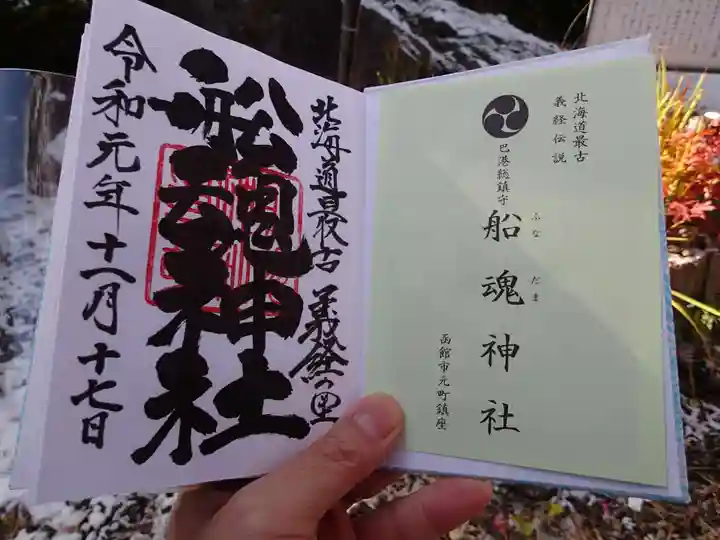 北海道最古 義経の里
船魂神社
令和元年十一月十七日
北海道最古
義経伝説
巴港総鎮守
船魂神社
ふなだま
函館市元町鎮座